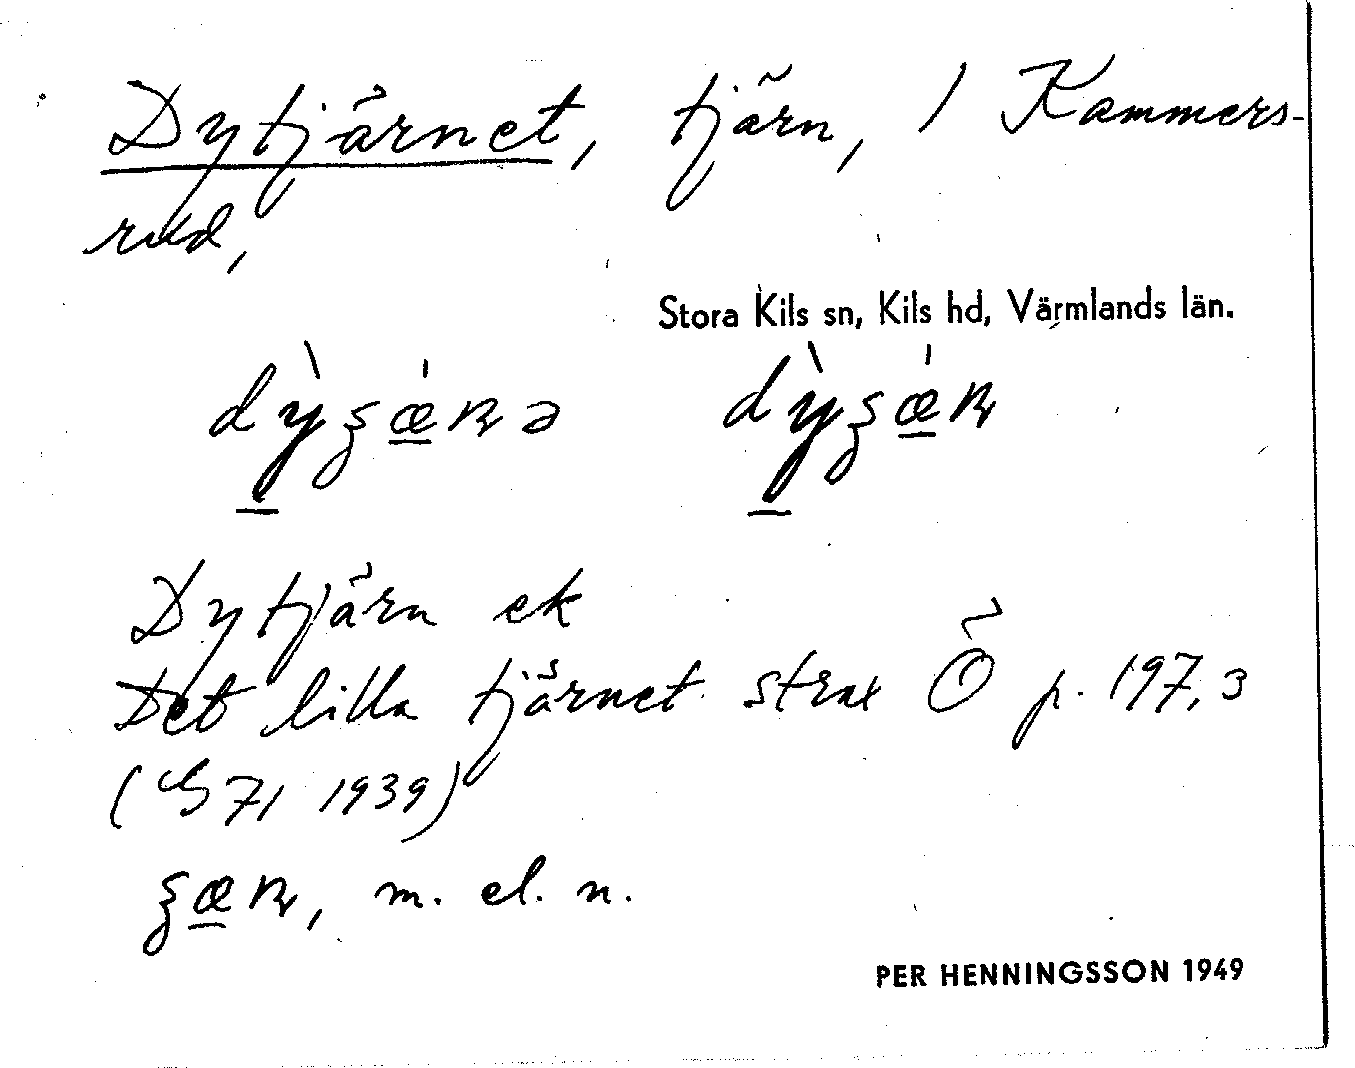 Dytjärnet, tjärn, / Kammers-
rud,
Stora Kils sn, Kils hd, Värmlands län.
Dytjärn ek
Det lilla tjärnet strax Ö p. 197,3
(G 71 1939)
m. el. n.
PER HENNINGSSON 1949